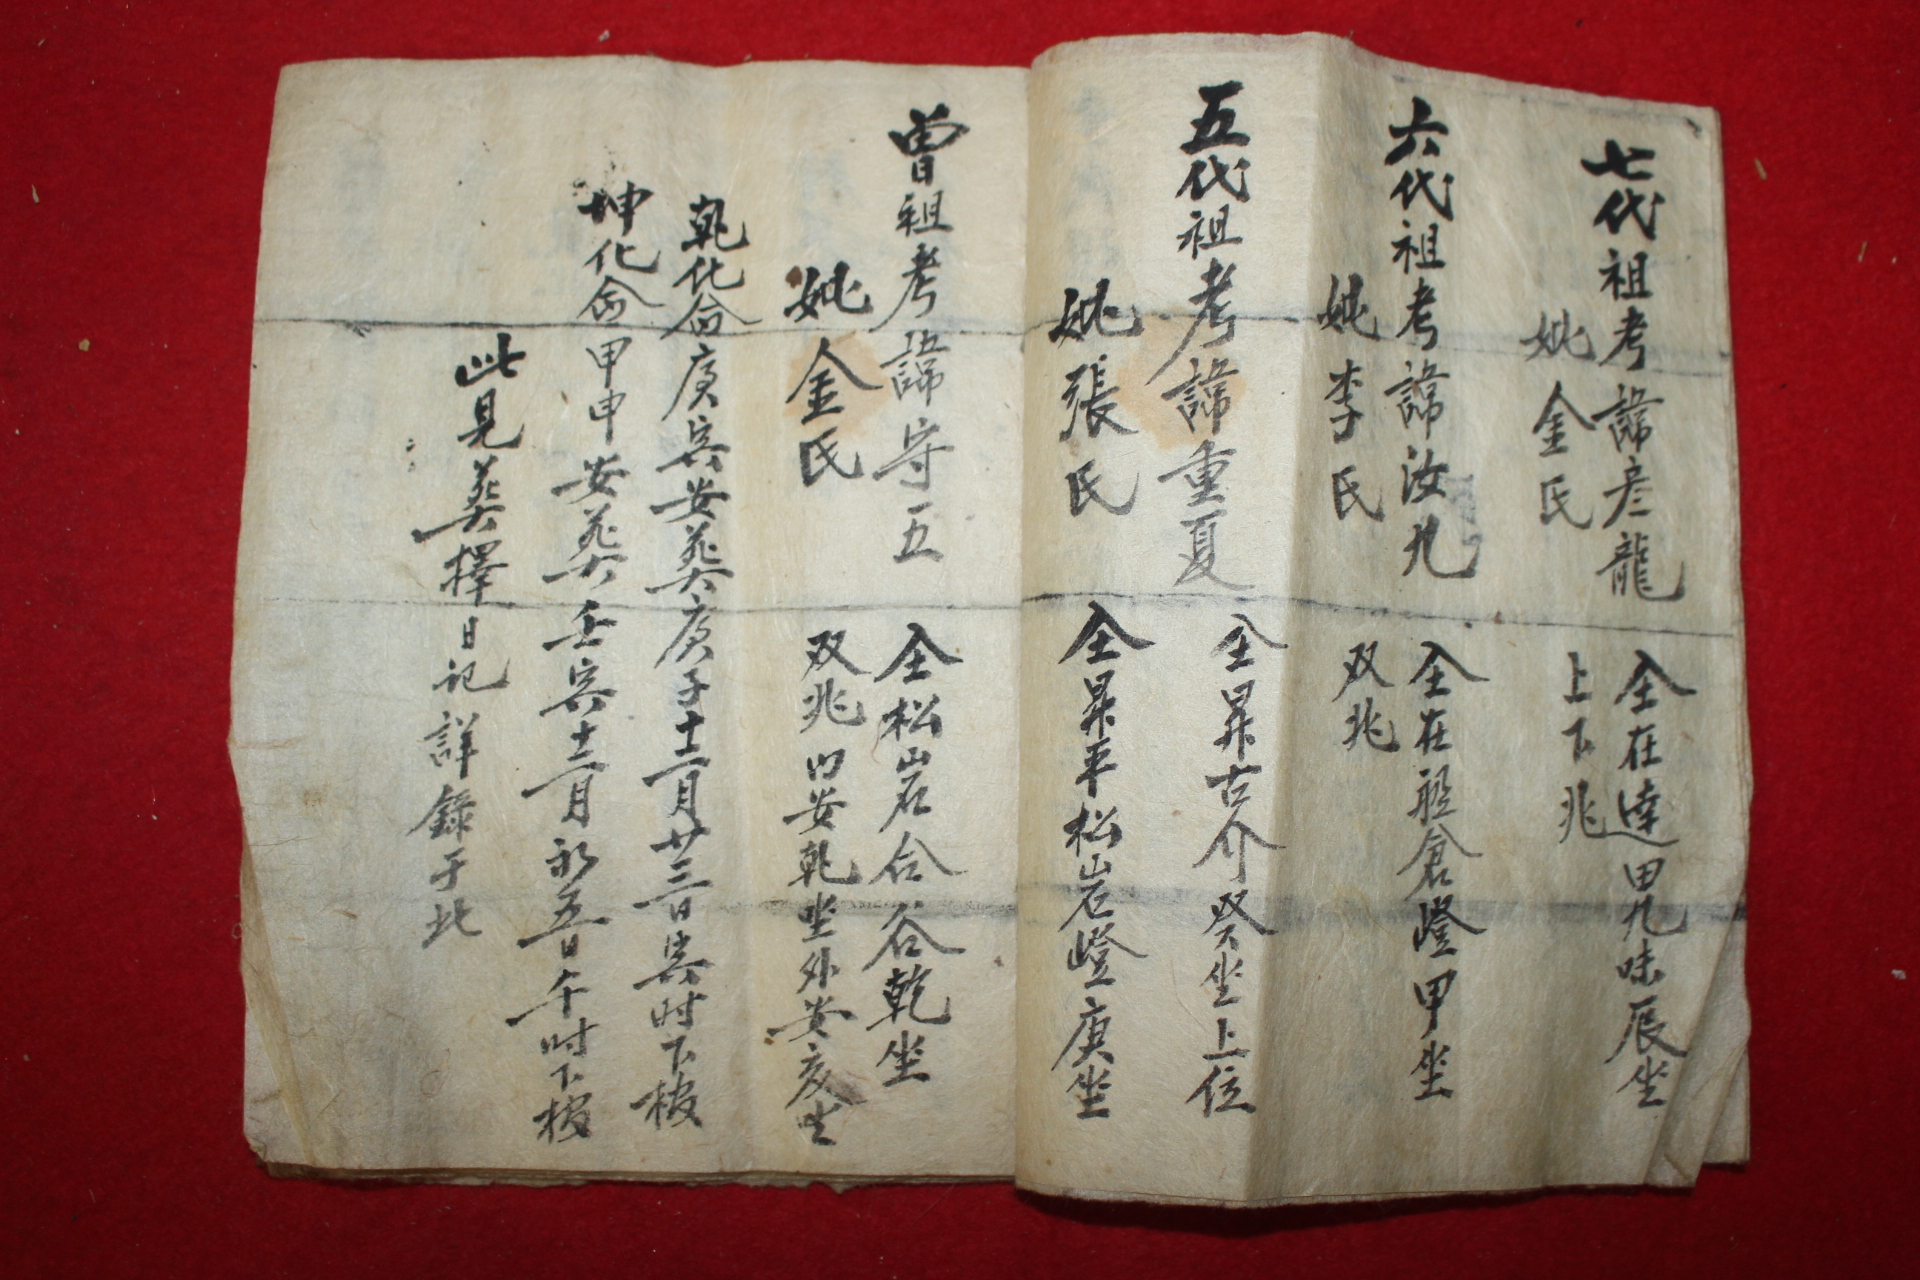 七代祖考諱彦龍 仝在達田九味辰坐
妣金氏 上下兆
六代祖考諱汝九 仝在昆倉嶝甲坐
妣李氏 双兆
五代祖考諱重夏 仝昇古介癸坐上位
妣張氏 仝昇平松岩嶝庚坐
曽祖考諱守五 仝松岩合谷乾坐
妣金氏 双兆内安乾坐外安亥坐
乾化命庚寅安葬庚子十二月廿三日寅时下棺
坤化命甲申安葬壬寅十二月初五日午时下棺
此見葬擇日記詳錄于此